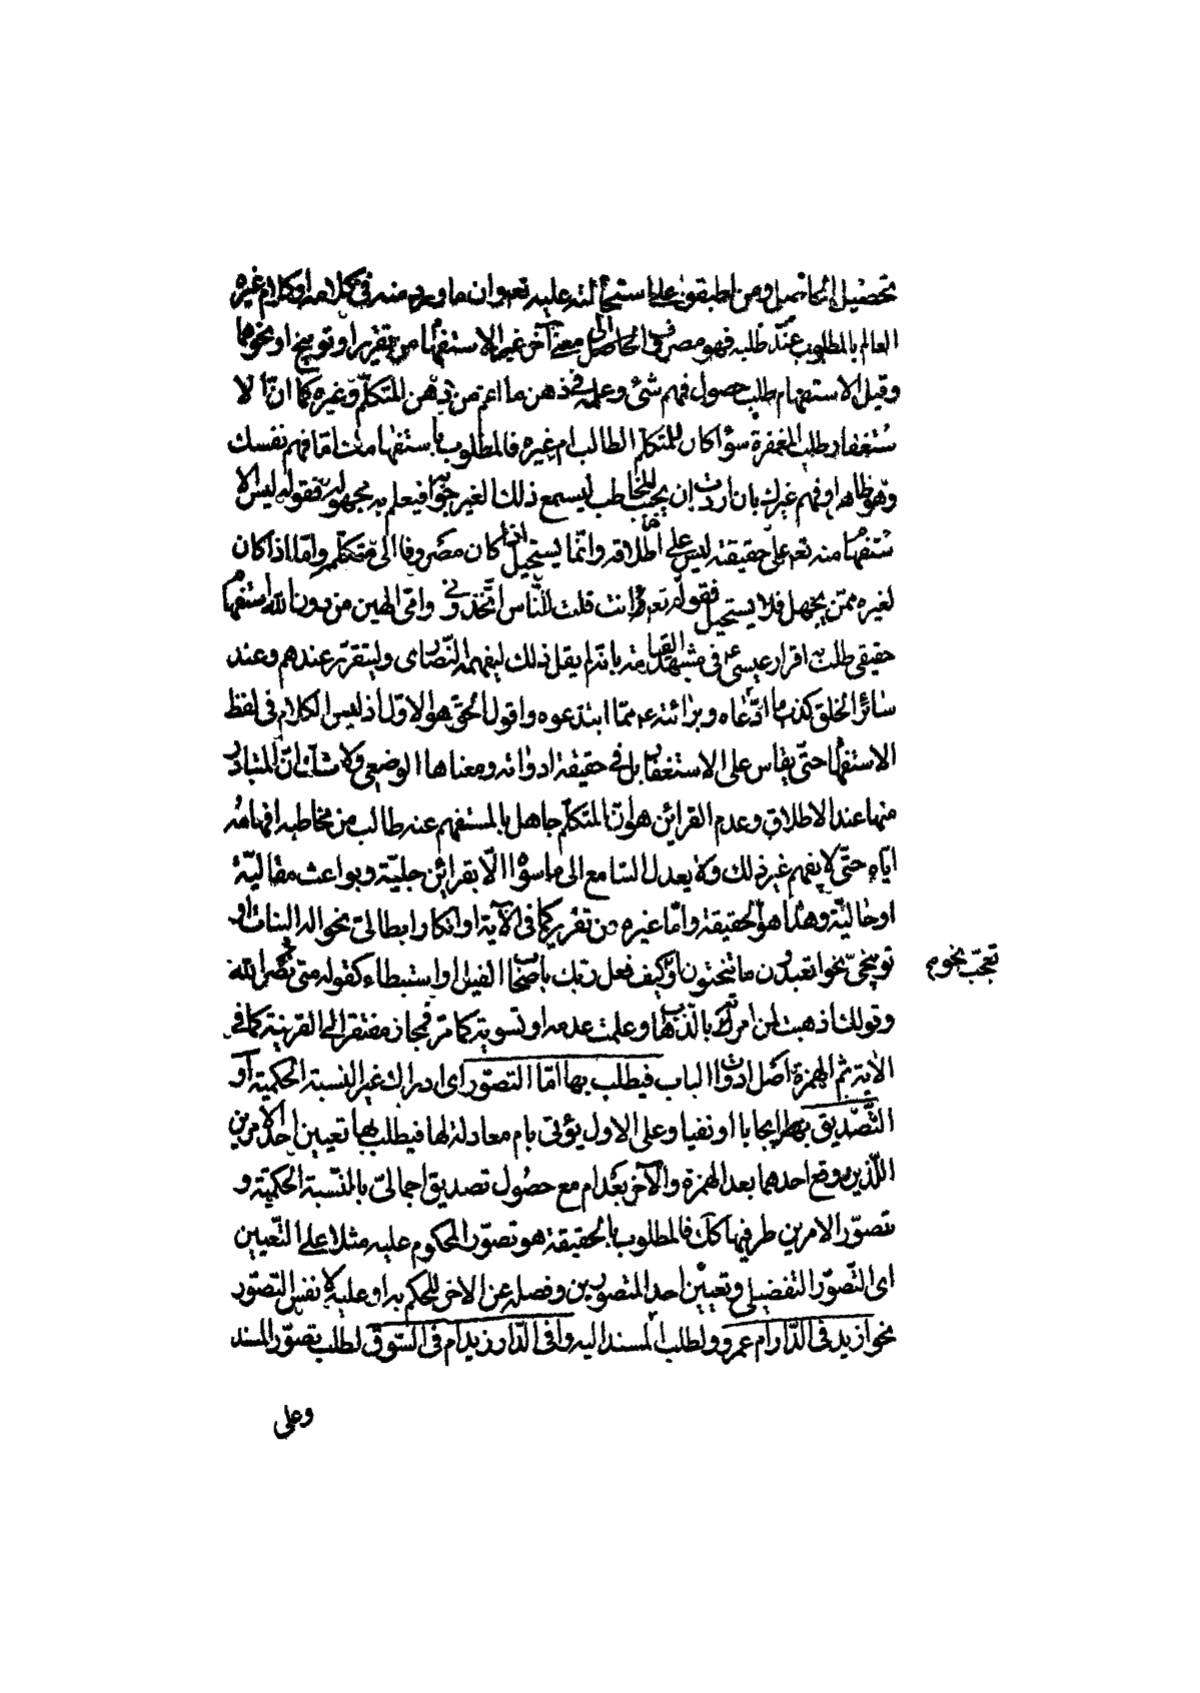 تحصيل الحاصل ومن ثم اطبقوا على استحالته عليه تعالى وان ما ورد منه في كلامه او كلام غيره
العالم بالمطلوب عند طلبه فهو مصروف الى معنى آخر غير الاستفهام من تقرير او توبيخ او نحوهما
وقيل الاستفهام طلب حصول فهم شئ وعلمه في ذهن ما اعم من ذهن المتكلم وغيره كما ان الا
ستغفار طلب المغفرة سواء كان للمتكلم الطالب ام غيره فالمطلوب باستفهامك اما فهم نفسك
وهو ظاهر او فهم غيرك بان اردت ان يجيب المخاطب ليسمع ذلك الغير جوابه فيعلم به مجهوله فقوله ليس الا
ستفهام منه تعم على حقيقته ليس على اطلاقه وانما يستحيل اذا كان مصروفا الى متكلمه واما اذا كان
لغيره ممن يجهل فلا يستحيل فقوله تعم ءانت قلت للناس اتخذوني وامي الهين من دون الله استفهام
حقيقي طلب به اقرار عيسى ع في مشهد القيامة بانه لم يقل ذلك ليفهمه النصارى وليتقرر عندهم وعند
سائر الخلق كذب ما ادعاه وبرائته ع مما ابتدعوه واقول الحق هو الاول اذ ليس الكلام في لفظ
الاستفهام حتى يقاس على الاستغفار بل في حقيقة ادواته ومعناها الوضعي ولا شك ان المتبادر
منها عند الاطلاق وعدم القرائن هو ان المتكلم جاهل بالمستفهم عنه طالب من مخاطبه افهامه
اياه حتى لا يفهم غير ذلك ولا يعدل السامع الى ما سواه الا بقرائن جلية وبواعث مقالية
او حالية وهذا هو الحقيقة واما غيره من تقرير كما في الآية او انكار ابطالي نحو اله البنات او
توبيخي نحو اتعبدون ما تنحتون او كيف فعل ربك باصحاب الفيل او استبطاء كقوله متى نصر الله
تعجب نحو م
وقولك اذهبت لمن امرته بالذهاب وعلمت عدمه او تسوية كما مر فمجاز مفتقر الى القرينة كما في
الآية ثم الهمزة اصل ادوات الباب فيطلب بها اما التصور اى ادراك غير النسبة الحكمية او
التصديق بها ايجابا او نفيا وعلى الاول يؤتى بام معادلة لها فيطلب بها تعيين احد الامرين
اللذين وقع احدهما بعد الهمزة والآخر بعد ام مع حصول تصديق اجمالي بالنسبة الحكمية و
تصور الامرين طرفيها كك فالمطلوب بالحقيقة هو تصور المحكوم عليه مثلا على التعيين
اى التصور التفصيلي وتعيين احد المتصورين وفصله عن الاخر للحكم به او عليه لا نفس التصور
نحو ازيد في الدار ام عمرو ولطلب المسند اليه وافي الدار زيد ام في السوق لطلب تصور المسند
وعلى